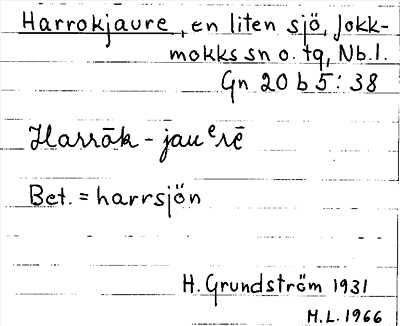 Harrokjaure, en liten sjö, Jokk-
mokks sn o. tg, Nb.l.
Gn 20 b 5: 38
Harrāk - jauᵉrē
Bet. = harrsjön
H. Grundström 1931
M.L. 1966